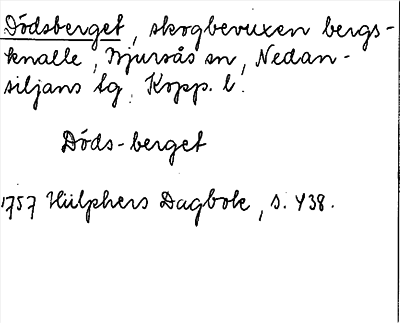 Dödsberget, skogbevuxen bergs-
knalle, Bjursås sn, Nedan-
siljans tg. Kopp. l.
Döds-berget
1757 Hülphers Dagbok, s. 438.